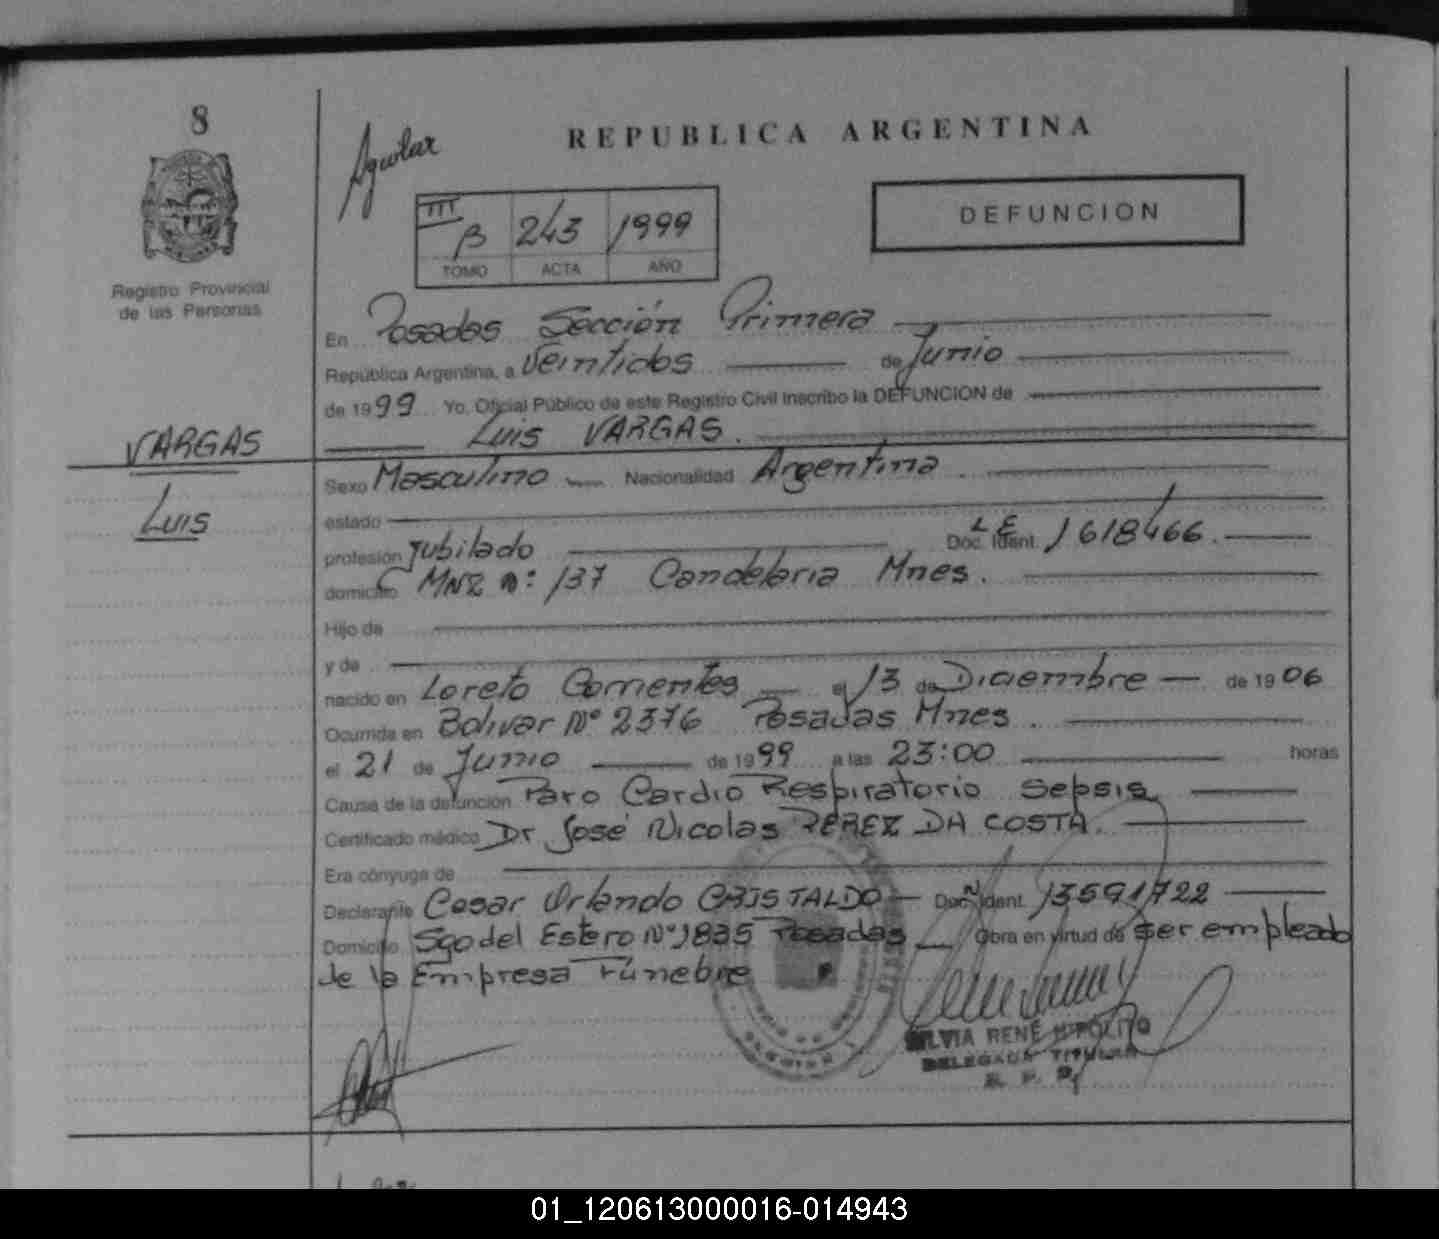 8
Aguilar
REPUBLICA ARGENTINA
III
B 243 1999
TOMO ACTA AÑO
DEFUNCION
Registro Provincial
de las Personas
En Posadas Sección Primera
República Argentina, a Veintidos de Junio
de 1999 Yo, Oficial Público de este Registro Civil Inscribo la DEFUNCION de
Luis VARGAS.
VARGAS
Luis
Sexo Masculino Nacionalidad Argentina
estado
profesión Jubilado Doc. Ident. L E 1618466.
domicilio MNZ n: 137 Candelaria Mnes.
Hijo de
y de
nacido en Loreto Corrientes el 13 de Diciembre de 1906
Ocurrida en Bolivar Nº 2376 Posadas Mnes.
el 21 de Junio de 1999 a las 23:00 horas
Causa de la defunción Paro Cardio Respiratorio Sepsis
Certificado médico Dr José Nicolas PEREZ DA COSTA.
Era cónyuge de
Declarante Cesar Orlando CRISTALDO Doc. Ident. N 13591722
Domicilio Sgo del Estero Nº 1835 Posadas Obra en virtud de ser empleado
de la Empresa Fúnebre
SILVIA RENÉ HIPOLITO
DELEGADA TITULAR
R. P. P.
01_120613000016-014943